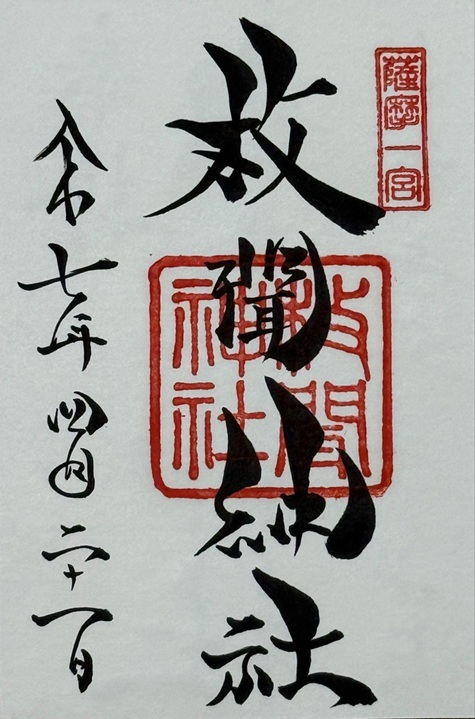 薩摩一宮
枚聞神社
枚聞
神社
令和七年四月二十一日